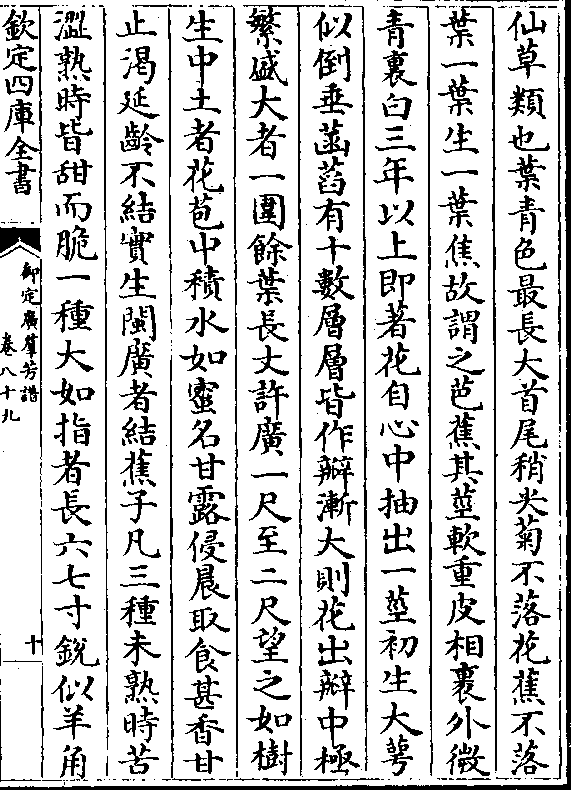 仙草類也葉青色最長大首尾稍尖菊不落花蕉不落
葉一葉生一葉焦故謂之芭蕉其莖軟重皮相裹外微
青裏白三年以上即著花自心中抽出一莖初生大萼
似倒垂菡萏有十數層層皆作瓣漸大則花出瓣中極
繁盛大者一圍餘葉長丈許廣一尺至二尺望之如樹
生中土者花苞中積水如蜜名甘露侵晨取食甚香甘
止渴延齡不結實生閩廣者結蕉子凡三種未熟時苦
澀熟時皆甜而脆一種大如指者長六七寸銳似羊角
欽定四庫全書
御定廣羣芳譜
卷八十九
十